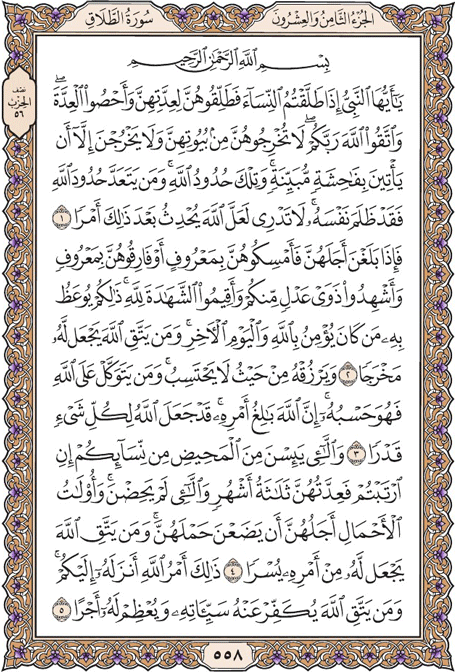 الجزء الثامن والعشرون
سورة الطلاق
نصف
الحزب
٥٦
بِسْمِ ٱللَّهِ ٱلرَّحْمَٰنِ ٱلرَّحِيمِ
يَٰٓأَيُّهَا ٱلنَّبِىُّ إِذَا طَلَّقْتُمُ ٱلنِّسَآءَ فَطَلِّقُوهُنَّ لِعِدَّتِهِنَّ وَأَحْصُوا۟ ٱلْعِدَّةَ ۖ
وَٱتَّقُوا۟ ٱللَّهَ رَبَّكُمْ ۖ لَا تُخْرِجُوهُنَّ مِنۢ بُيُوتِهِنَّ وَلَا يَخْرُجْنَ إِلَّآ أَن
يَأْتِينَ بِفَٰحِشَةٍ مُّبَيِّنَةٍ ۚ وَتِلْكَ حُدُودُ ٱللَّهِ ۚ وَمَن يَتَعَدَّ حُدُودَ ٱللَّهِ
فَقَدْ ظَلَمَ نَفْسَهُۥ ۚ لَا تَدْرِى لَعَلَّ ٱللَّهَ يُحْدِثُ بَعْدَ ذَٰلِكَ أَمْرًا ١
فَإِذَا بَلَغْنَ أَجَلَهُنَّ فَأَمْسِكُوهُنَّ بِمَعْرُوفٍ أَوْ فَارِقُوهُنَّ بِمَعْرُوفٍ
وَأَشْهِدُوا۟ ذَوَىْ عَدْلٍ مِّنكُمْ وَأَقِيمُوا۟ ٱلشَّهَٰدَةَ لِلَّهِ ۚ ذَٰلِكُمْ يُوعَظُ
بِهِۦ مَن كَانَ يُؤْمِنُ بِٱللَّهِ وَٱلْيَوْمِ ٱلْءَاخِرِ ۚ وَمَن يَتَّقِ ٱللَّهَ يَجْعَل لَّهُۥ
مَخْرَجًا ٢ وَيَرْزُقْهُ مِنْ حَيْثُ لَا يَحْتَسِبُ ۚ وَمَن يَتَوَكَّلْ عَلَى ٱللَّهِ
فَهُوَ حَسْبُهُۥٓ ۚ إِنَّ ٱللَّهَ بَٰلِغُ أَمْرِهِۦ ۚ قَدْ جَعَلَ ٱللَّهُ لِكُلِّ شَىْءٍ
قَدْرًا ٣ وَٱلَّٰٓـِٔى يَئِسْنَ مِنَ ٱلْمَحِيضِ مِن نِّسَآئِكُمْ إِنِ
ٱرْتَبْتُمْ فَعِدَّتُهُنَّ ثَلَٰثَةُ أَشْهُرٍ وَٱلَّٰٓـِٔى لَمْ يَحِضْنَ ۚ وَأُو۟لَٰتُ
ٱلْأَحْمَالِ أَجَلُهُنَّ أَن يَضَعْنَ حَمْلَهُنَّ ۚ وَمَن يَتَّقِ ٱللَّهَ
يَجْعَل لَّهُۥ مِنْ أَمْرِهِۦ يُسْرًا ٤ ذَٰلِكَ أَمْرُ ٱللَّهِ أَنزَلَهُۥٓ إِلَيْكُمْ ۚ
وَمَن يَتَّقِ ٱللَّهَ يُكَفِّرْ عَنْهُ سَيِّـَٔاتِهِۦ وَيُعْظِمْ لَهُۥٓ أَجْرًا ٥
٥٥٨